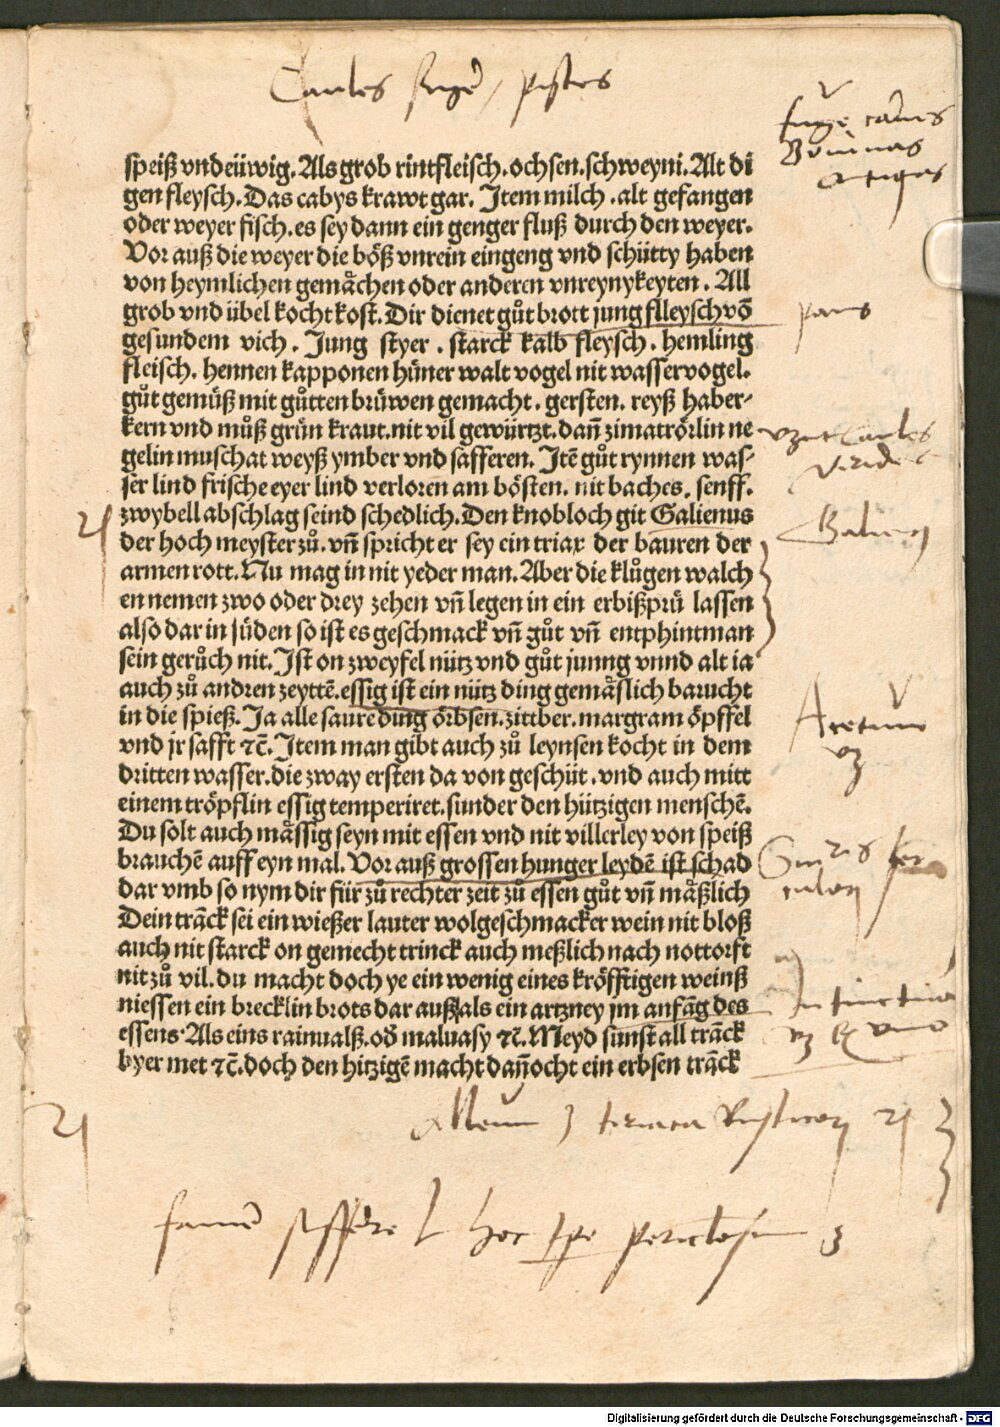 Caules fuge / pisces
fuge carnes
Bouinas
Antiquas
speiß vnd eüwig. Als grob rintfleisch. ochsen. schweyni. Alt di
gen fleysch. Das cabys krawt gar. Item milch . alt gefangen
oder weyer fisch. es sey dann ein genger fluß durch den weyer.
Vor auß die weyer die böß vnrein eingeng vnd schütty haben
von heymlichen gemåchen oder anderen vnreynykeyten. All
grob vnd übel kocht kost. Dir dienet gůt brott jung flleysch võ
panis
gesundem vich . Jung styer . starck kalb fleysch . hemling
fleisch. hennen kapponen hüner walt vogel nit wasser vogel.
gůt gemüß mit gůtten brüwen gemacht . gersten. reyß haber-
kern vnd můß grün kraut. nit vil gewürtzt. dañ zimatrörlin ne
caules
gelin muschat weyß ymber vnd safferen. Itē gůt rynnen was-
virides
ser lind frische eyer lind verloren am bösten. nit baches. senff.
zwybell abschlag seind schedlich. Den knobloch git Galienus
Galienus
der hoch meyster zů. vñ spricht er sey ein triax der bauren der
armen rott. Nu mag in nit yeder man. Aber die klůgen walch
en nemen zwo oder drey zehen vñ legen in ein erbißprü lassen
also dar in süden so ist es geschmack vñ gůt vñ entphint man
sein gerůch nit. Ist on zweyfel nütz vnd gůt junng vnnd alt ia
auch zů andren zeyttē. essig ist ein nütz ding gemåßlich barucht
in die spieß. Ja alle saure ding örbsen. zittber. margram öpffel
Acetum
vnd jr safft ⁊c̄. Item man gibt auch zů leynsen kocht in dem
dritten wasser. die zway ersten da von geschüt . vnd auch mitt
einem tröpflin essig temperiret. sunder den hützigen menschē.
Du solt auch måssig seyn mit essen vnd nit villerley von speiß
brauchē auff eyn mal. Vor auß grossen hunger leydē ist schad
dar vmb so nym dir für zů rechter zeit zů essen gůt vñ måßlich
Dein trāck sei ein wießer lauter wolgeschmacker wein nit bloß
auch nit starck on gemecht trinck auch meßlich nach nottorft
nit zů vil. du macht doch ye ein wenig eines kröfftigen weinß
niessen ein brecklin brots dar auß als ein artzney jm anfāg des
essens. Als eins rainualß. oď maluasy ⁊c̄. Meyd sunst all trāck
vino
byer met ⁊c̄. doch den hitzigē macht dañocht ein erbsen trāck
Alleum tiriaca Rusticorum
famē sufferre hoc tempore periculosum
Digitalisierung gefördert durch die Deutsche Forschungsgemeinschaft - DFG